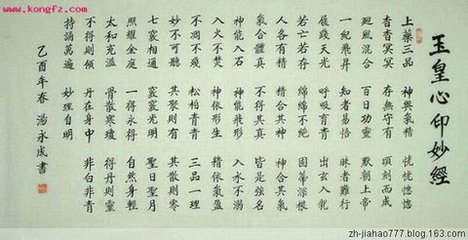 www.kongfz.com
玉皇心印妙經
上藥三品 神與氣精 恍恍惚惚
杳杳冥冥 存無守有 頃刻而成
迴風混合 百日功靈 默朝上帝
一紀飛昇 知者易悟 昧者難行
履踐天光 呼吸育青 出玄入牝
若亡若存 綿綿不絕 固蒂深根
人各有精 精合其神 神合其氣
氣合體真 不得其真 皆是強名
神能入石 神能飛形 入水不溺
入火不焚 神依形生 精依氣盈
不凋不殘 松柏青青 三品一理
妙不可聽 其聚則有 其散則零
七竅相通 竅竅光明 聖日聖月
照耀金庭 一得永得 自然身輕
太和充溢 骨散寒瓊 得丹則靈
不得則傾 丹在身中 非白非青
持誦萬遍 妙理自明
乙酉年春 湯永成書
zh-jiahao777.blog.163.com